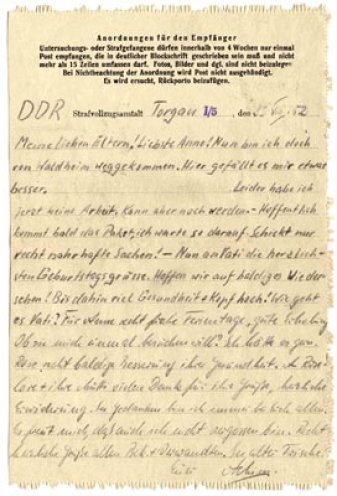 Anordnungen für den Empfänger
Untersuchungs- oder Strafgefangene dürfen innerhalb von 4 Wochen nur einmal
Post empfangen, die in deutlicher Blockschrift geschrieben sein muß und nicht
mehr als 15 Zeilen umfassen darf. Fotos, Bilder und dgl. sind nicht beizulegen
Bei Nichtbeachtung der Anordnung wird Post nicht ausgehändigt.
Es wird ersucht, Rückporto beizufügen.
DDR Strafvollzugsanstalt Torgau I/5, den 52
Meine lieben Eltern! Liebste Anne! Nun bin ich doch
von Waldheim weggekommen. Hier gefällt es mir etwas
besser. Leider habe ich
jetzt keine Arbeit, kann aber noch werden. - Hoffentlich
kommt bald das Paket, ich warte so darauf. Schickt nur
recht nahrhafte Sachen! - Nun an Vati die herzlich-
sten Geburtstagsgrüsse. Hoffen wir auf baldiges Wieder-
sehen! Bis dahin viel Gesundheit + Kopf hoch! Wie geht
es Vati? Für Anne recht frohe Ferientage, gute Erholung
Ob sie mich einmal besuchen will? Ich hätte es gern.
Rose recht baldige Besserung ihrer Gesundheit.
ihre vielen Dank für die Grüße, herzliche
Erwiderung. In Gedanken bin ich immer bei Euch allen.
Es freut mich, daß auch ich nicht vergessen bin. Recht
herzliche Grüße allen Bek. + Verwandten. In alter Frische
Euer